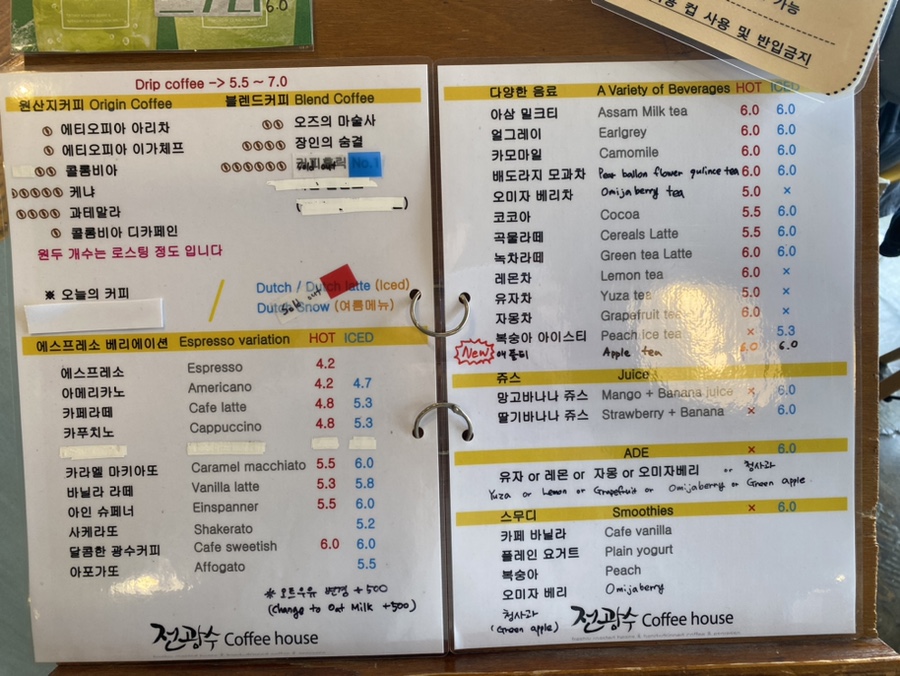 6.0
가능
컵 사용 및 반입금지
Drip coffee -> 5.5 ~ 7.0
원산지커피 Origin Coffee 블렌드커피 Blend Coffee
에티오피아 아리차
에티오피아 이가체프
콜롬비아
케냐
과테말라
콜롬비아 디카페인
오즈의 마술사
장인의 숨결
No.1
원두 개수는 로스팅 정도 입니다
※ 오늘의 커피
Dutch / Dutch latte (Iced)
Dutch Snow (여름메뉴)
Sold out
에스프레소 베리에이션 Espresso variation HOT ICED
에스프레소 Espresso 4.2
아메리카노 Americano 4.2 4.7
카페라떼 Cafe latte 4.8 5.3
카푸치노 Cappuccino 4.8 5.3
카라멜 마키아또 Caramel macchiato 5.5 6.0
바닐라 라떼 Vanilla latte 5.3 5.8
아인 슈페너 Einspanner 5.5 6.0
사케라또 Shakerato 5.2
달콤한 광수커피 Cafe sweetish 6.0 6.0
아포가토 Affogato 5.5
※ 오트우유 변경 +500
(Change to Oat Milk +500)
전광수 Coffee house
다양한 음료 A Variety of Beverages HOT ICED
아삼 밀크티 Assam Milk tea 6.0 6.0
얼그레이 Earlgrey 6.0 6.0
카모마일 Camomile 6.0 6.0
배도라지 모과차 Pear ballon flower qulince tea 6.0 6.0
오미자 베리차 Omijaberry tea 5.0 ×
코코아 Cocoa 5.5 6.0
곡물라떼 Cereals Latte 5.5 6.0
녹차라떼 Green tea Latte 6.0 6.0
레몬차 Lemon tea 6.0 ×
유자차 Yuza tea 5.0 ×
자몽차 Grapefruit tea 6.0 ×
복숭아 아이스티 Peach Ice tea × 5.3
New 애플티 Apple tea 6.0 6.0
쥬스 Juice
망고바나나 쥬스 Mango + Banana juice × 6.0
딸기바나나 쥬스 Strawberry + Banana × 6.0
ADE × 6.0
유자 or 레몬 or 자몽 or 오미자베리 or 청사과
Yuza or Lemon or Grapefruit or Omijaberry or Green apple
스무디 Smoothies × 6.0
카페 바닐라 Cafe vanilla
플레인 요거트 Plain yogurt
복숭아 Peach
오미자 베리 Omijaberry
청사과
(Green apple)
전광수 Coffee house